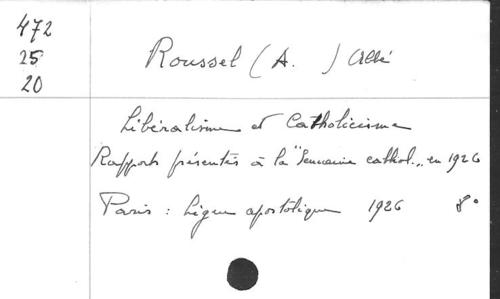 472
25
20
Roussel (A. ) Abbé
Libéralisme et Catholicisme
Rapports présentés à la "Semaine cathol.„ en 1926
Paris : Ligue apostolique 1926 8°